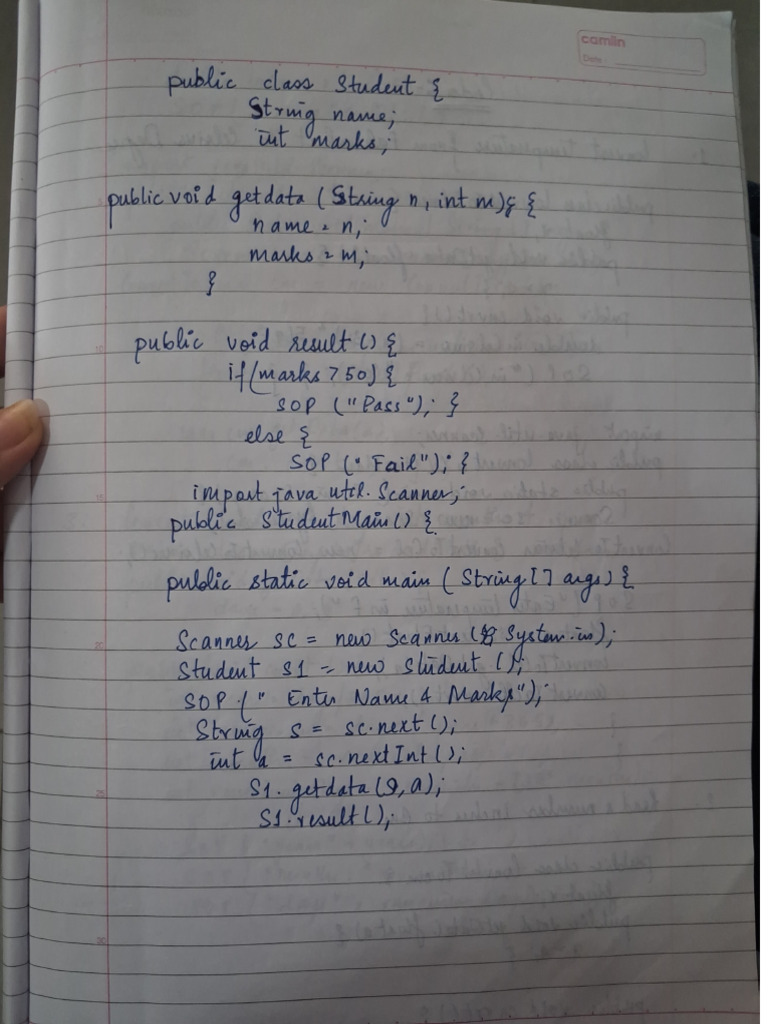 camlin
Date
public class Student {
String name;
int marks;
public void getdata (String n, int m); {
name = n;
marks = m;
}
public void result () {
if (marks > 50) {
SOP ("Pass"); }
else {
SOP ("Fail"); }
import java util. Scanner;
public StudentMain () {
public static void main (String [] args) {
Scanner sc = new Scanner (System.in);
Student S1 = new Student ();
SOP (" Enter Name & Marks");
String s = sc.next ();
int a = sc.nextInt ();
S1. getdata (s, a);
S1.result ();